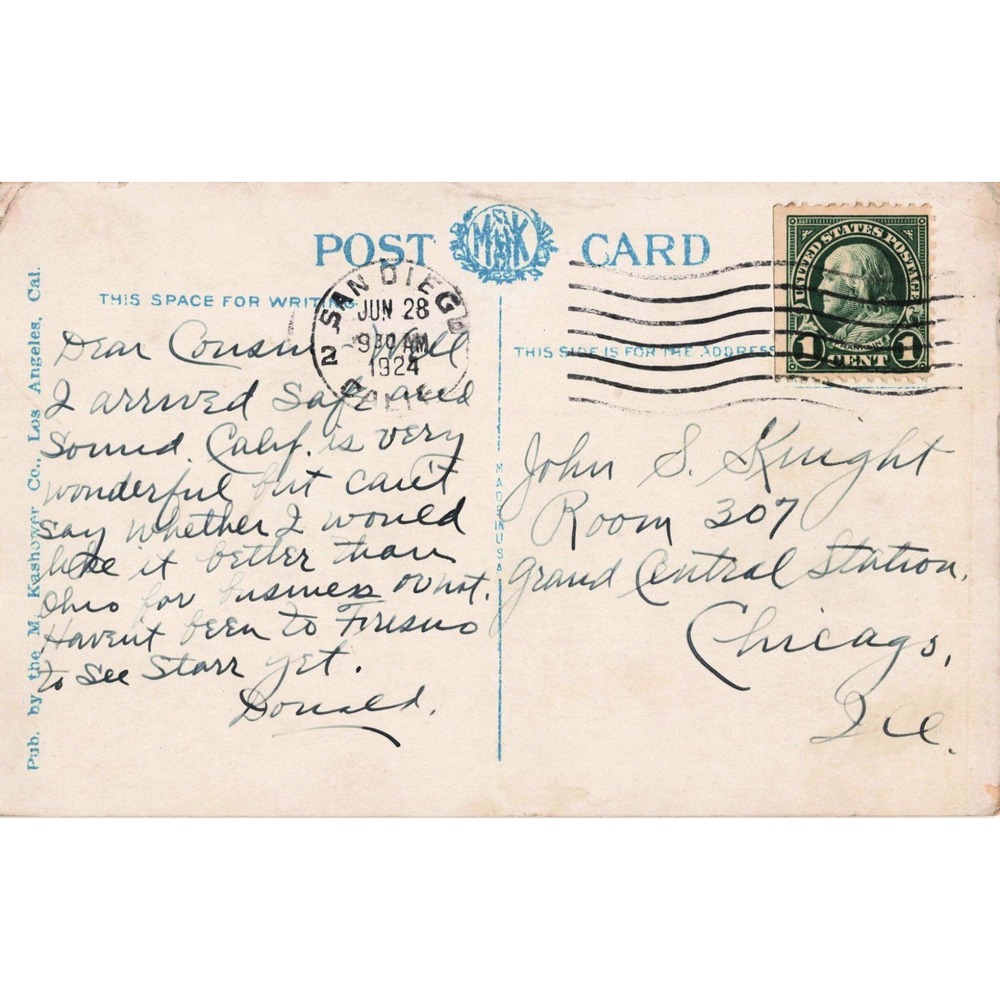 POST CARD
MK
THIS SPACE FOR WRITING
THIS SIDE IS FOR THE ADDRESS
SAN DIEGO
2
JUN 28
930 AM
1924
CALIF.
UNITED STATES POSTAGE
FRANKLIN
1 CENT 1
Dear Cousin
I arrived safe and
sound. Calif. is very
wonderful but can't
say whether I would
like it better than
Ohio for business or not.
Haven't been to Fresno
to see Starr yet.
Donald.
John S. Knight
Room 307
Grand Central Station,
Chicago,
Ill.
MADE IN USA
Pub. by the M. Kashower Co., Los Angeles, Cal.